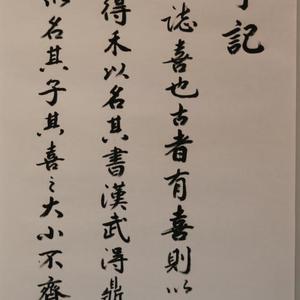 記
誌喜也古者有喜則以
得禾以名其書漢武得鼎
名其子其喜之大小不齊